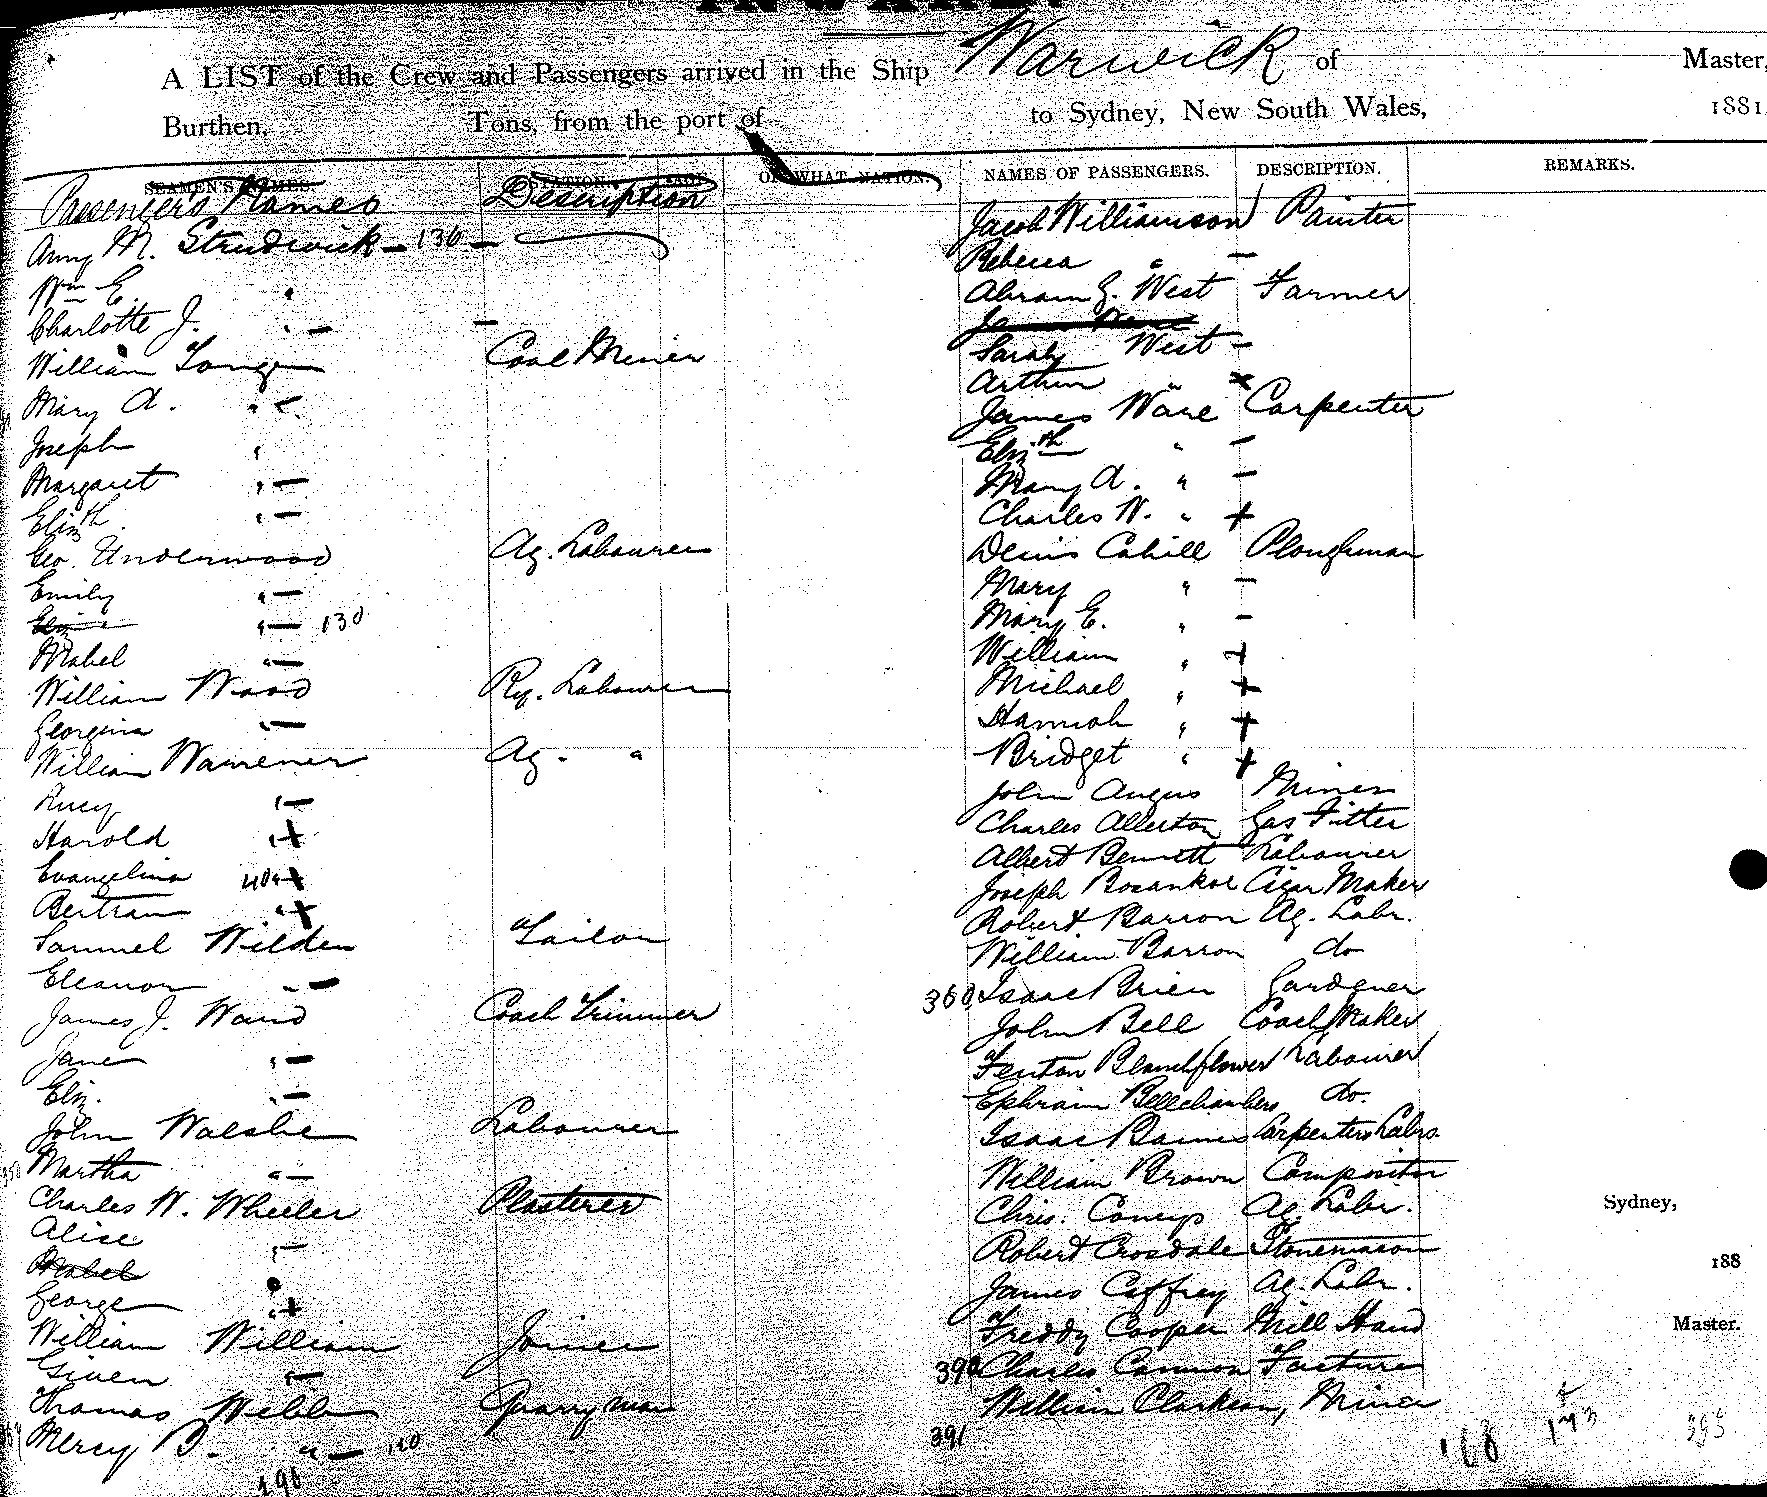 INWARD.
A LIST of the Crew and Passengers arrived in the Ship Warwick of Master,
Burthen, Tons, from the port of to Sydney, New South Wales, 1881
SEAMEN'S NAMES. STATION. AGE. OF WHAT NATION. NAMES OF PASSENGERS. DESCRIPTION. REMARKS.
Passengers Names Description
Amy M. Strudwick — 136 —
Wm E. "
Charlotte J. " — —
William Longe Coal Miner
Mary A. " —
Joseph "
Margaret " —
Elizth " —
Geo. Underwood Ag. Labourer
Emily " —
Eliz " " — 130
Mabel " —
William Wood Ry. Labourer
Georgina " —
William Wamener Ag. "
Lucy " —
Harold " +
Evangelina " +
Bertram " +
Samuel Wilden Tailor
Eleanor " —
James J. Ward Coach Trimmer
Jane " —
Eliz. " —
John Walshe Labourer
Martha " —
Charles W. Wheeler Plasterer
Alice " —
Mabel
George " +
William William Joiner
Given " —
Thomas Webb Quarryman
Mercy B. " —
Jacob Williamson Painter
Rebecca " —
Abram G. West Farmer
Sarah West —
Arthur " x
James Ware Carpenter
Elizth " —
Mary A. " —
Charles W. " +
Denis Cahill Ploughman
Mary " —
Mary E. " —
William " +
Michael " +
Hannah " +
Bridget " +
John Angus Miner
Charles Allerton Gas Fitter
Albert Bennett Labourer
Joseph Bosankoe Cigar Maker
Robert Barron Ag. Labr.
William Barron do
360 Isaac Brien Gardener
John Bell Coach Maker
Fenton Blanchflower Labourer
Ephraim Bellchambers do.
Isaac Barnes Carpenters Labr.
William Brown Compositor
Chris. Coneys Ag Labr.
Robert Crosdale Stonemason
James Caffrey Ag. Labr.
Freddy Cooper Mill Hand
390 Charles Cannon
William Clarkson, Miner
391
168
173
395
Sydney,
188
Master.